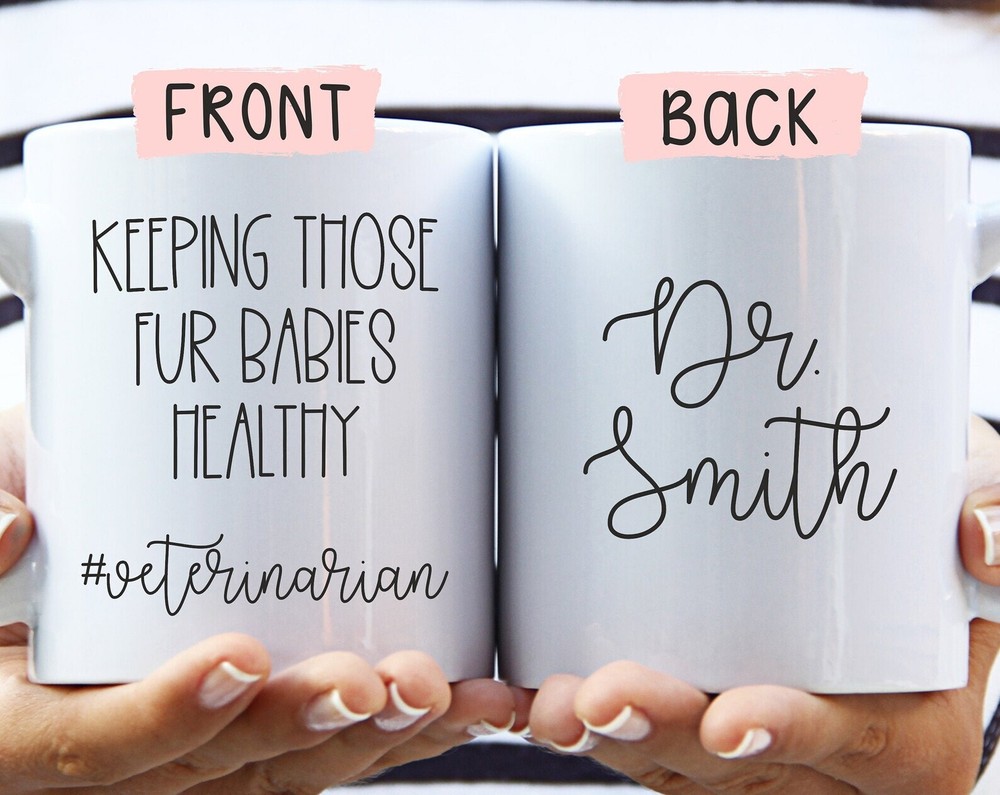 FRONT
KEEPING THOSE
FUR BABIES
HEALTHY
#veterinarian
BACK
Dr.
Smith